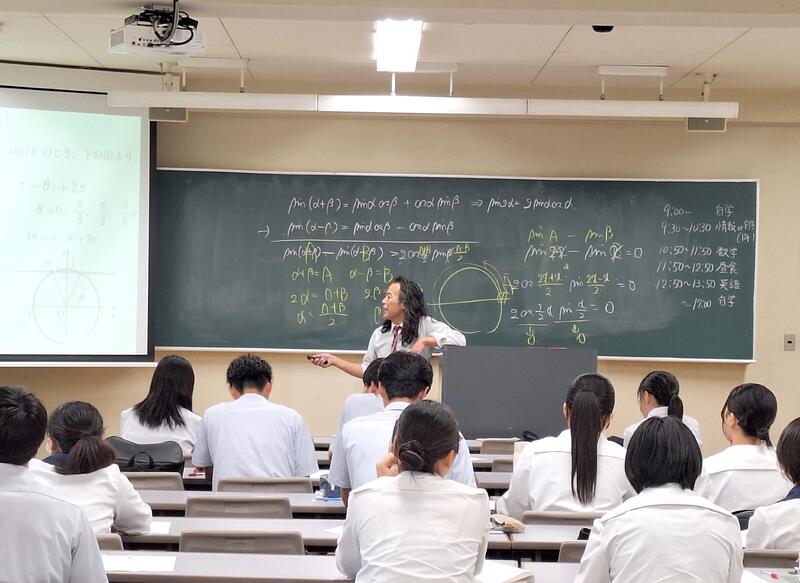 sin7θのとき,下の図より
π-θi+2π
θ=0, π/8, π/3, 3/8π
2θ = π-θi+2π
sin(α+β)=sinαcosβ + cosαsinβ ⇒ sin2α=2sinαcosα.
→) sin(α-β)= sinαcosβ - cosαsinβ
sin(α+β)-sin(α-β)=2cos A+B/2 sin A-B/2
α+β=A α-β=B
2α=A+B 2β=
α= A+B/2
sin A - sin B
=0
2cos sin =0
2cos sin x/2 =0
0
9:00~ 自学
9:30~10:30 情報or自学
(1年)
10:50~11:50 数学
11:50~12:50 昼食
12:50~13:50 英語
~17:00 自学